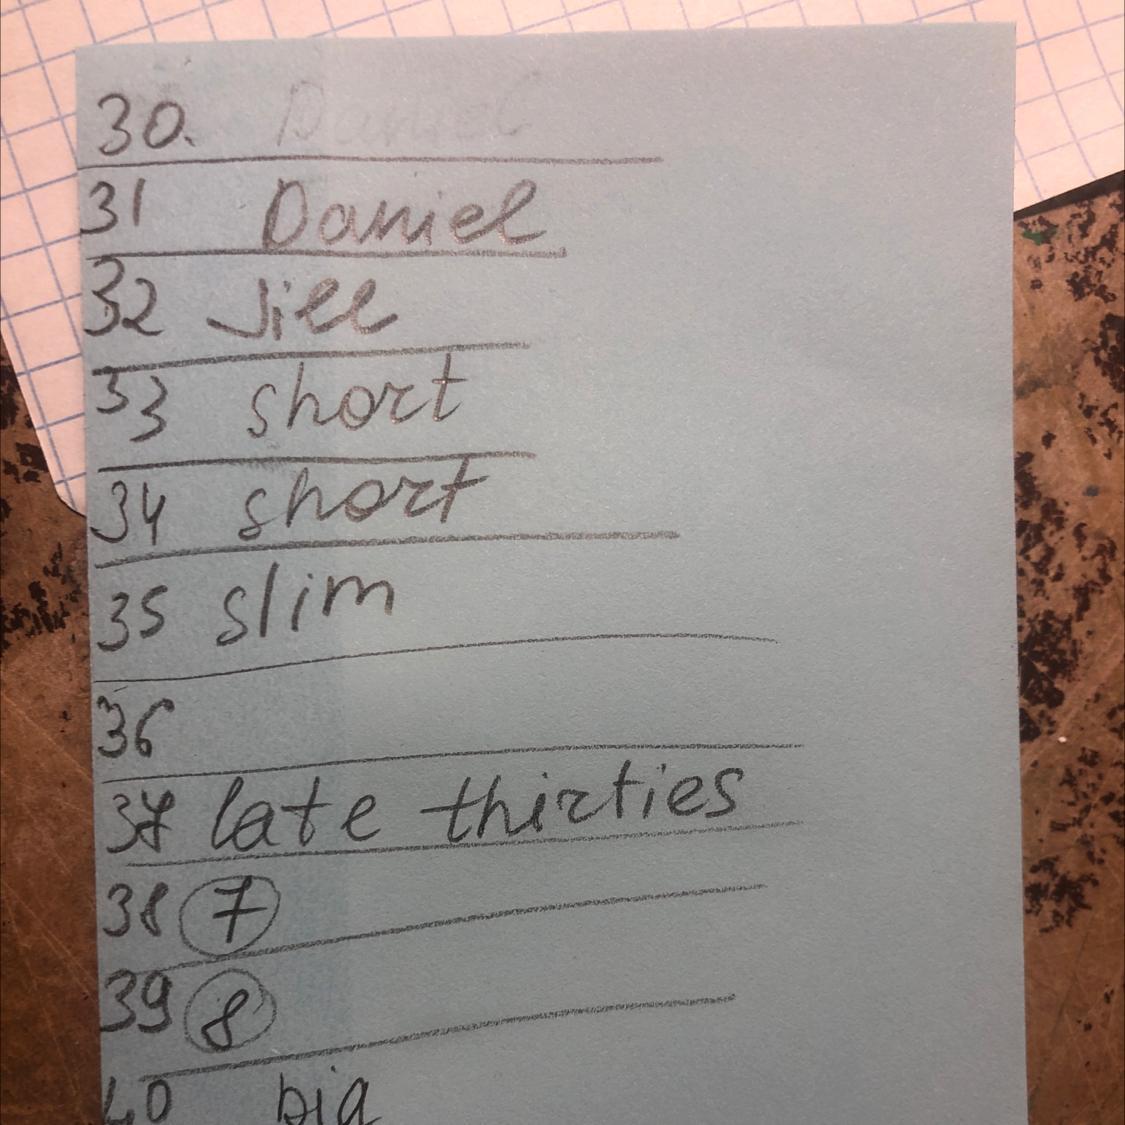 30. Daniel
31 Daniel
32 Jill
33 short
34 short
35 slim
36
37 late thirties
38 7
39 8
40 big